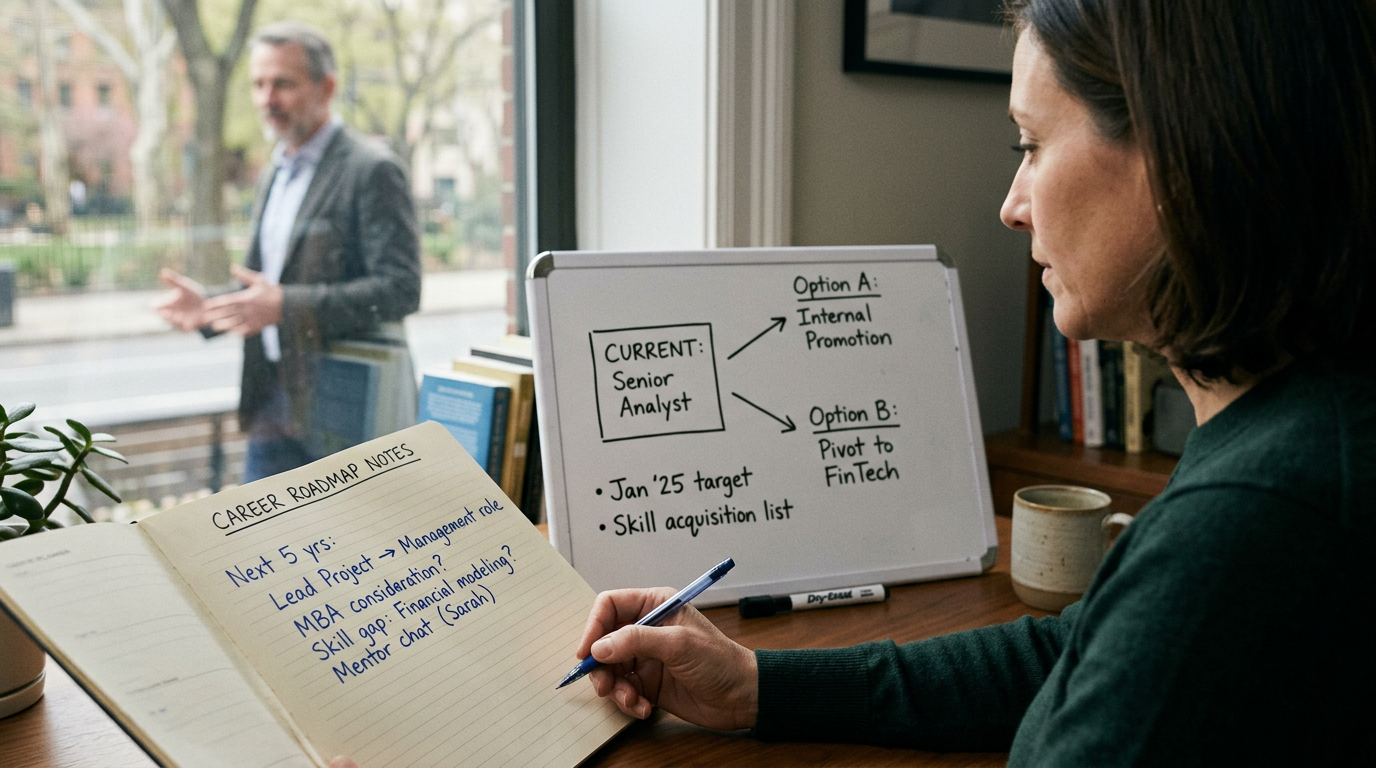 CAREER ROADMAP NOTES
Next 5 yrs:
Lead Project → Management role
MBA consideration?
Skill gap: Financial modeling?
Mentor chat (Sarah)
CURRENT:
Senior
Analyst
Option A:
Internal
Promotion
Option B:
Pivot to
FinTech
• Jan '25 target
• Skill acquisition list
Dry-Erase